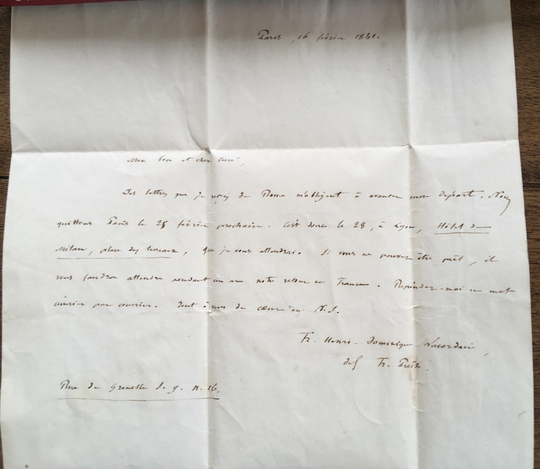 Paris, 16 février 1841.
Mon bon et cher ami,
Des lettres que je reçois de Rome m'obligent à avancer mon départ. Nous
quittons Paris le 25 février prochain. C'est donc le 28, à Lyon, Hôtel de
Milan, place des Terreaux, que je vous attendrai. Si vous ne pouvez être prêt, il
vous faudra attendre pendant un an notre retour en France. Répondez-moi un mot
courrier par courrier. Tout à vous de cœur en N.S.
Fr. Henri-Dominique Lacordaire,
des Fr. Prêch.
Rue de Grenelle S. G. n. 16.